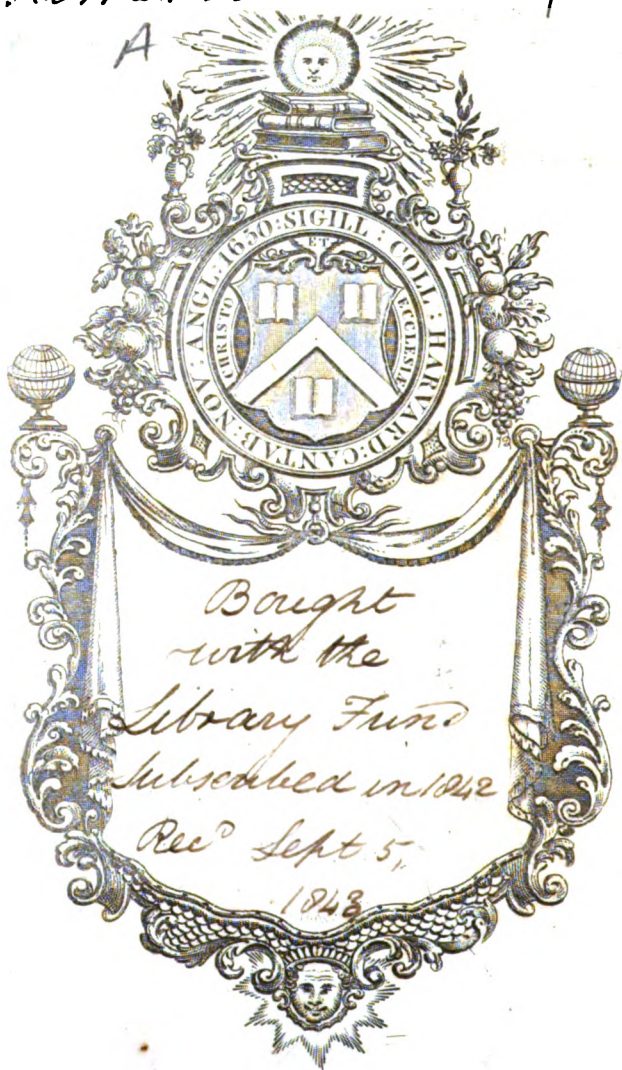 A
SIGILL : COLL : HARVARD : CANTAB : NOV : ANGL : 1650 :
CHRISTO ET ECCLESIÆ
Bought
with the
Library Fund
Subscribed in 1842
Recd Sept 5,
1843